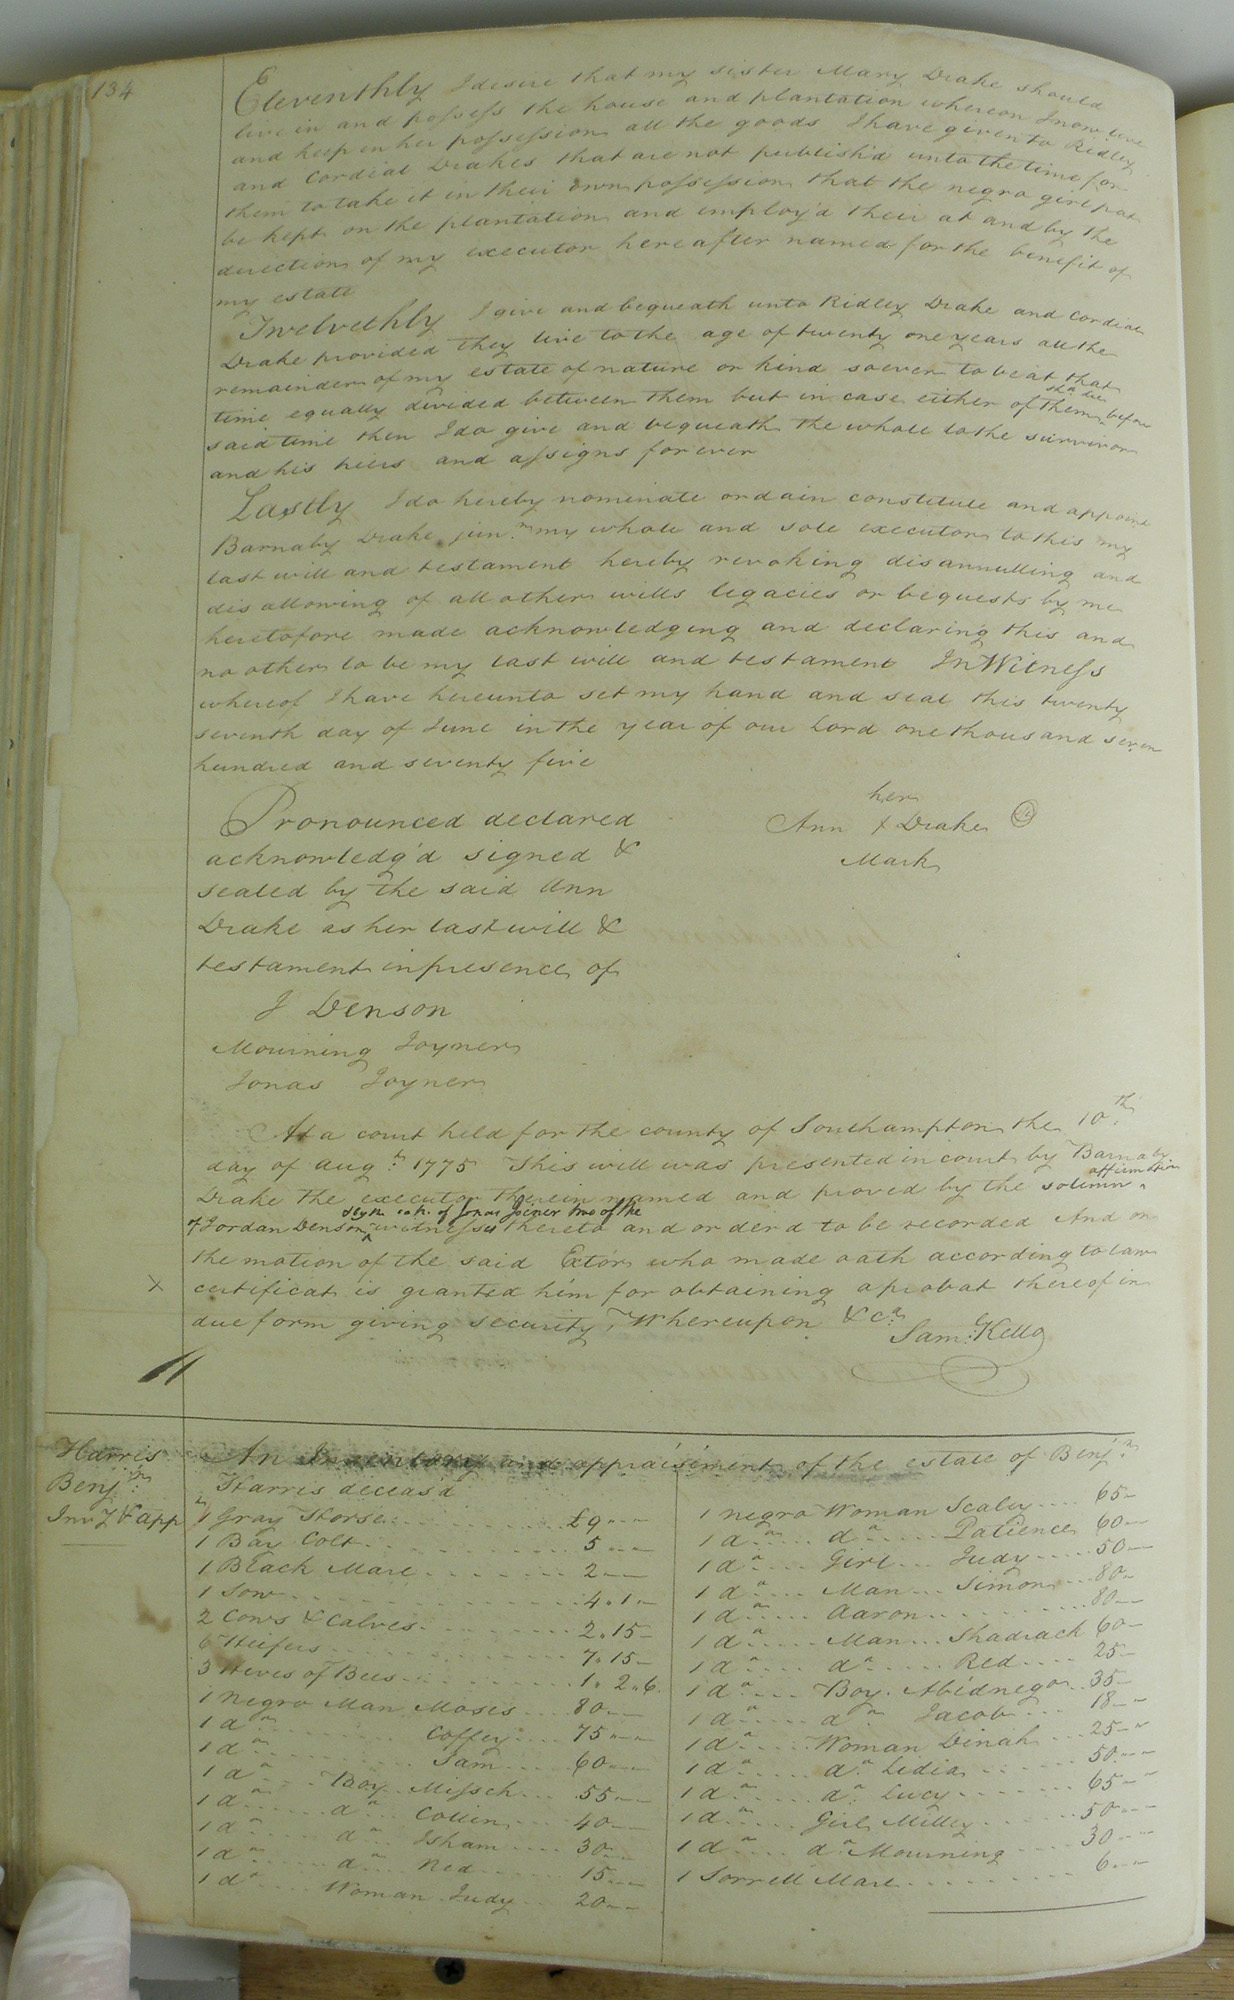 134
Eleventhly I desire that my sister Mary Drake should
live in and possess the house and plantation whereon I now live
and keep in her possession all the goods I have given to Ridley
and Cordial Drakes that are not publish'd unto the time for
them to take it in their own possession that the negro girl
be kept on the plantation and employ'd their at and by the
direction of my executor hereafter named for the benefit of
my estate
Twelvethly I give and bequeath unto Ridley Drake and Cordial
Drake provided they live to the age of twenty one years all the
remainder of my estate of nature or kind soever to be at that
time equally divided between them but in case either of them shd. die before
said time then I do give and bequeath the whole to the survivor
and his heirs and assigns forever
Lastly I do hereby nominate ordain constitute and appoint
Barnaby Drake junr. my whole and sole executor to this my
last will and testament hereby revoking disannulling and
disallowing of all other wills legacies or bequests by me
heretofore made acknowledging and declaring this and
no other to be my last will and testament In Witness
whereof I have hereunto set my hand and seal this twenty
seventh day of June in the year of our Lord one thousand seven
hundred and seventy five
Pronounced declared
acknowledg'd signed &
sealed by the said Ann
Drake as her last will &
testament in presence of
her
Ann X Drake
Mark
J Denson
Mourning Joyner
Jonas Joyner
At a court held for the county of Southampton the 10th.
day of Augt. 1775 This will was presented in court by Barnaby
Drake the executor therein named and proved by the solemn affirmation
of Jordan Denson & by the oath of Jonas Joiner two of the witnesses thereto and order'd to be recorded And on
the motion of the said Exto'r who made oath according to law
certificate is granted him for obtaining a probat thereof in
due form giving security, Whereupon &ca.
Saml. Kello
X
Harris
Benjn.
Invy & app
An Inventory and appraisement of the estate of Benjn.
Harris deceas'd
1 Gray Horse £9 " "
1 Bay Colt 5 " "
1 Black Mare 2 " "
1 Sow 4 " 1 "
2 Cows & Calves 2 " 15 "
6 Heifers 7 " 15 "
3 Hives of Bees 1 " 2 " 6
1 Negro Man Moses 80 " "
1 do. Coffey 75 " "
1 do. Sam 60 " "
1 do. Boy Missch 55 " "
1 do. do. Collin 40 " "
1 do. do. Isham 30 "
1 do. do. Ned 15 " "
1 do. Woman Judy 20 " "
1 negro Woman Scaley 65 "
1 do. do. Patience 60 " "
1 do. Girl Judy 50 " "
1 do. Man Simon 80 "
1 do. Aaron 80 " "
1 do. Man Shadrach 60 "
1 do. do. Red 25 "
1 do. Boy Abidnego 35 "
1 do. do. Jacob 18 " "
1 do. Woman Dinah 25 " "
1 do. do. Lidia 50 " "
1 do. do. Lucy 65 " "
1 do. Girl Milley 50 " "
1 do. do. Mourning 30 " "
1 Sorrell Mare 6 " "